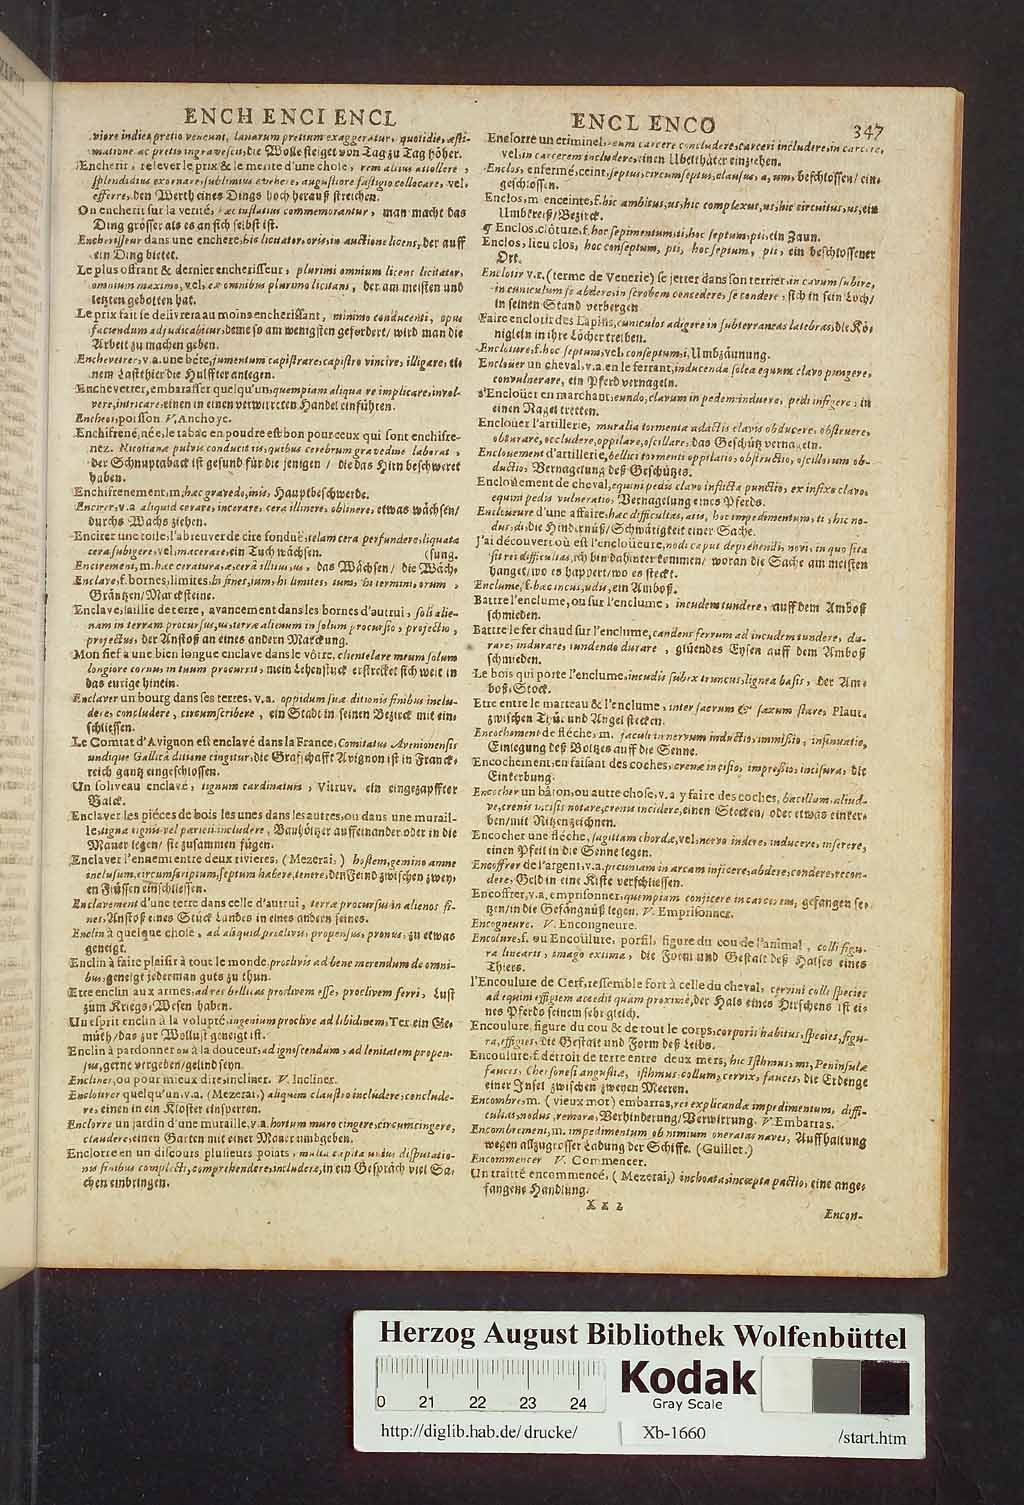 ENCH ENCI ENCL
viore indies pretio veneunt, lanarum pretium exaggeratur, quotidie, æsti-
matione ac pretio ingravescit, die Wolle steiget von Tag zu Tag höher.
Encherir, relever le prix & le merite d'une chose, rem altius attollere,
splendidius exornare, sublimius evehere, augustiore fastigio collocare, vel,
efferre, den Werth eines Dings hoch herauß streichen.
On encherit sur la verité, hæc inflatius commemorantur, man macht das
Ding grösser als es an sich selbst ist.
Encherisseur dans une enchere, hic licitator, oris, in auctione licens, der auff
ein Ding bietet.
Le plus offrant & dernier encherisseur, plurimi omnium licens licitator,
omnium maximo, vel, ex omnibus plurimo licitans, der am meisten und
letzten gebotten hat.
Le prix fait se delivrera au moins encherissant, minimo conducenti, opus
faciendum adjudicabitur, deme so am wenigsten gefordert/ wird man die
Arbeit zu machen geben.
Enchevetrer, v.a. une bête, jumentum capistrare, capistro vincire, illigare, ei-
nem Lastthier die Hulffter anlegen.
Enchevetrer, embarasser quelqu'un, quempiam aliqua re implicare, invol-
vere, intricare, einen in einen verwirreten Handel einführen.
Encheoi, poisson V. Anchoye.
Enchifrené, née, le tabac en poudre est bon pour ceux qui sont enchifre-
nez. Nicotiana pulvis conducit iis, quibus cerebrum gravedine laborat,
der Schnuptaback ist gesund für die jenigen/ die das Hirn beschweret
haben.
Enchifrenement, m, hæc gravedo, inis, Hauptbeschwerde.
Encirer, v.a aliquid cerare, incerare, cera illinere, oblinere, etwas wächsen/
durchs Wachs ziehen.
Encirer une toile, l'abreuver de cire fonduë, telam cera perfundere, liquata
cera subigere, vel, macerare, ein Tuch wächsen. (sung.
Encirement, m. hæc ceratura, æ, cerâ illitus, us, das Wächsen/ die Wäch-
Enclave, f. bornes, limites, hi fines, ium, hi limites, tum, hi termini, orum,
Gräntzen/ Marcksteine.
Enclave, saillie de terre, avancement dans les bornes d'autrui, soli alie-
nam in terram procursus, us, terræ alienum in solum procursio, projectio,
projectus, der Anstoß an eines andern Marckung.
Mon fief a une bien longue enclave dans le vôtre, clientelare meum solum
longiore cornu, in tuum procurrit, mein Lehenstück erstrecket sich weit in
das eurige hinein.
Enclaver un bourg dans ses terres, v.a. oppidum suæ ditionis finibus inclu-
dere, concludere, circumscribere, ein Stadt in seinen Bezirck mit ein-
schliessen.
Le Comtat d'Avignon est enclavé dans la France, Comitatus Avenionensis
undique Gallicâ ditione cingitur, die Grafschafft Avignon ist in Franck-
reich gantz eingeschlossen.
Un soliveau enclavé, tignum cardinatum, Vitruv. ein eingezapffter
Balck.
Enclaver les piéces de bois les unes dans les autres, ou dans une murail-
le, tigna tignis vel parieti includere, Bauhöltzer auffeinander oder in die
Mauer legen/ sie zusammen fügen.
Enclaver l'ennemi entre deux rivieres, (Mezerai,) hostem, gemino amne
inclusum, circumscriptum, septum habere, tenere, den Feind zwischen zwey-
en Flüssen einschliessen.
Enclavement d'une terre dans celle d'autrui, terræ procursus in alienos fi-
nes, Anstoß eines Stück Landes in eines andern seines.
Enclin à quelque chose, ad aliquid proclivis, propensus, pronus, zu etwas
geneigt.
Enclin à faire plaisir à tout le monde, proclivis ad bene merendum de omni-
bus, geneigt jederman guts zu thun.
Etre enclin aux armes, ad res bellicas proclivem esse, proclivem ferri, Lust
zum Kriegs-Wesen haben.
Un esprit enclin à la volupté, ingenium proclive ad libidinem, Ter. ein Ge-
müth/ das zur Wollust geneigt ist.
Enclin à pardonner ou à la douceur, ad ignoscendum, ad lenitatem propen-
sus, gerne vergeben/ gelind seyn.
Encliner, ou pour mieux dire, incliner. V. Incliner.
Encloîtrer quelqu'un, v.a. (Mezerai,) aliquem claustro includere, conclude-
re, einen in ein Kloster einsperren.
Enclorre un jardin d'une muraille, v.a. hortum muro cingere, circumcingere,
claudere, einen Garten mit einer Mauer umbgeben.
Enclorre en un discours plusieurs points, multa capita unius disputatio-
nis finibus complecti, comprehendere, includere, in ein Gespräch viel Sa-
chen einbringen.
ENCL ENCO
347
Enclorre un criminel, reum carcere concludere, carceri includere, in carcere,
vel, in carcerem includere, einen Ubelthäter einziehen.
Enclos, enfermé, ceint, septus, circumseptus, clausus, a, um, beschlossen/ ein-
geschlossen.
Enclos, m enceinte, f. hic ambitus, us, hic complexus, us, hic circuitus, us, ein
Umkreiß/ Bezirck.
¶ Enclos, clôture, f. hoc sepimentum, ti, hoc septum, pti, ein Zaun.
Enclos, lieu clos, hoc conseptum, pti, hoc septum, pti, ein beschlossener
Ort.
Enclotir v.r. (terme de Venerie) se jetter dans son terrier, in cavum subire,
in cuniculum se abdere, in scrobem concedere, se condere, sich in sein Loch/
in seinen Stand verbergen
Faire enclotir des Lapins, cuniculos adigere in subterraneas latebras, die Kö-
nigelein in ihre Löcher treiben.
Encloture, f. hoc septum, vel, conseptum, i, Umbzäunung.
Enclouer un cheval, v.a. en le ferrant, inducenda solea equum clavo pungere,
convulnerare, ein Pferd vernageln.
s'Enclouer en marchant, eundo, clavum in pedem induere, pedi infigere, in
einen Nagel tretten.
Enclouer l'artillerie, muralia tormenta adactis clavis obducere, obstruere,
obturare, occludere, oppilare, oscillare, das Geschütz vernageln.
Enclouement d'artillerie, bellici tormenti oppilatio, obstructio, oscillorum ob-
ductio, Vernagelung deß Geschützes.
Enclouement de cheval, equini pedis clavo inflicta punctio, ex infixo clavo,
equini pedis vulneratio, Vernagelung eines Pferds.
Enclouëure d'une affaire, hæc difficultas, atis, hoc impedimentum, ti, hic no-
dus, di, die Hindernüß/ Schwürigkeit einer Sache.
J'ai découvert où est l'enclouëure, nodi caput deprehendi, novi, in quo sita
sit rei difficultas, ich bin dahinter kommen/ woran die Sache am meisten
hanget/ wo es happert/ wo es steckt.
Enclume, f. hæc incus, udis, ein Amboß.
Battre l'enclume, ou sur l'enclume, incudem tundere, auff dem Amboß
schmieden.
Battre le fer chaud sur l'enclume, candens ferrum ad incudem tundere, du-
rare, indurare, tundendo durare, glüendes Eysen auff dem Amboß
schmieden.
Le bois qui porte l'enclume, incudis subex truncus, lignea basis, der Am-
boß-Stock.
Etre entre le marteau & l'enclume, inter sacrum & saxum stare, Plaut.
zwischen Thü. und Angel stecken.
Encochement de fléche, m. jaculi in nervum inductio, immissio, insinuatio,
Einlegung deß Boltzes auff die Senne.
Encochement, en faisant des coches, crenæ incisio, impressio, incisura, die
Einkerbung.
Encocher un bâton, ou autre chose, v.a y faire des coches, bacillum, aliud-
ve, crenis incisis notare, crenis incidere, einen Stecken/ oder etwas einker-
ben/ mit Ritzen zeichnen.
Encocher une fléche, sagittam chordæ, vel, nervo indere, inducere, inserere,
einen Pfeil in die Senne legen.
Encoffrer de l'argent, v.a. pecuniam in arcam injicere, abdere, condere, recon-
dere, Geld in eine Kiste verschliessen.
Encoffrer, v.a, emprisonner, quempiam conjicere in carcerem, gefangen se-
tzen/ in die Gefängnüß legen. V. Emprisonner.
Encogneure. V. Encongneure.
Encolure, f. ou Encoülure, porfil, figure du cou de l'animal, colli figu-
ra linearis, imago extima, die Form und Gestalt deß Halses eines
Thiers.
l'Encoulure de Cerf, ressemble fort à celle du cheval, cervini colli species
ad equini effigiem accedit quam proximè, der Hals eines Hirschens ist ei-
nes Pferds seinem sehr gleich.
Encoulure, figure du cou & de tout le corps, corporis habitus, species, figu-
ra, effigies, die Gestalt und Form deß Leibs.
Encoulure, f. détroit de terre entre deux mers, hic Isthmus, mi, Peninsulæ
fauces, Chersonesi angustiæ, isthmus collum, cervix, fauces, die Erdenge
einer Insel zwischen zweyen Meeren.
Encombre, m. (vieux mot) embarras, rei explicandæ impedimentum, diffi-
cultas, nodus, remora, Verhinderung/ Verwirrung. V. Embarras.
Encombrement, m. impedimentum ob nimium oneratas naves, Auffhaltung
wegen allzugrosser Ladung der Schiffe. (Guillet.)
Encommencer V. Commencer.
Un traitté encommencé, (Mezerai,) inchoata, incœpta pactio, eine ange-
fangene Handlung.
X x 2
Encon-
Herzog August Bibliothek Wolfenbüttel
Kodak
Gray Scale
0 21 22 23 24
http://diglib.hab.de/drucke/ Xb-1660 /start.htm